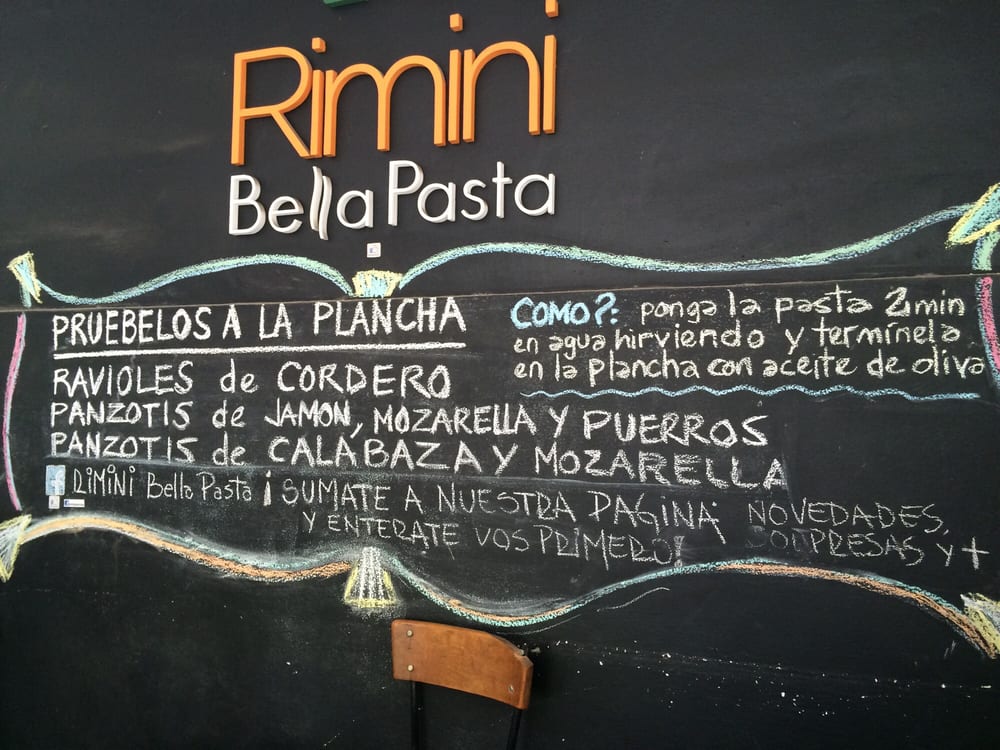 Rimini
Bella Pasta
PRUEBELOS A LA PLANCHA
RAVIOLES de CORDERO
PANZOTIS de JAMON, MOZARELLA Y PUERROS
PANZOTIS de CALABAZA Y MOZARELLA
COMO?: ponga la pasta 2 min
en agua hirviendo y termínela
en la plancha con aceite de oliva
RIMINI Bella Pasta ¡SUMATE A NUESTRA PAGINA
Y ENTERATE VOS PRIMERO!
NOVEDADES,
SORPRESAS y +